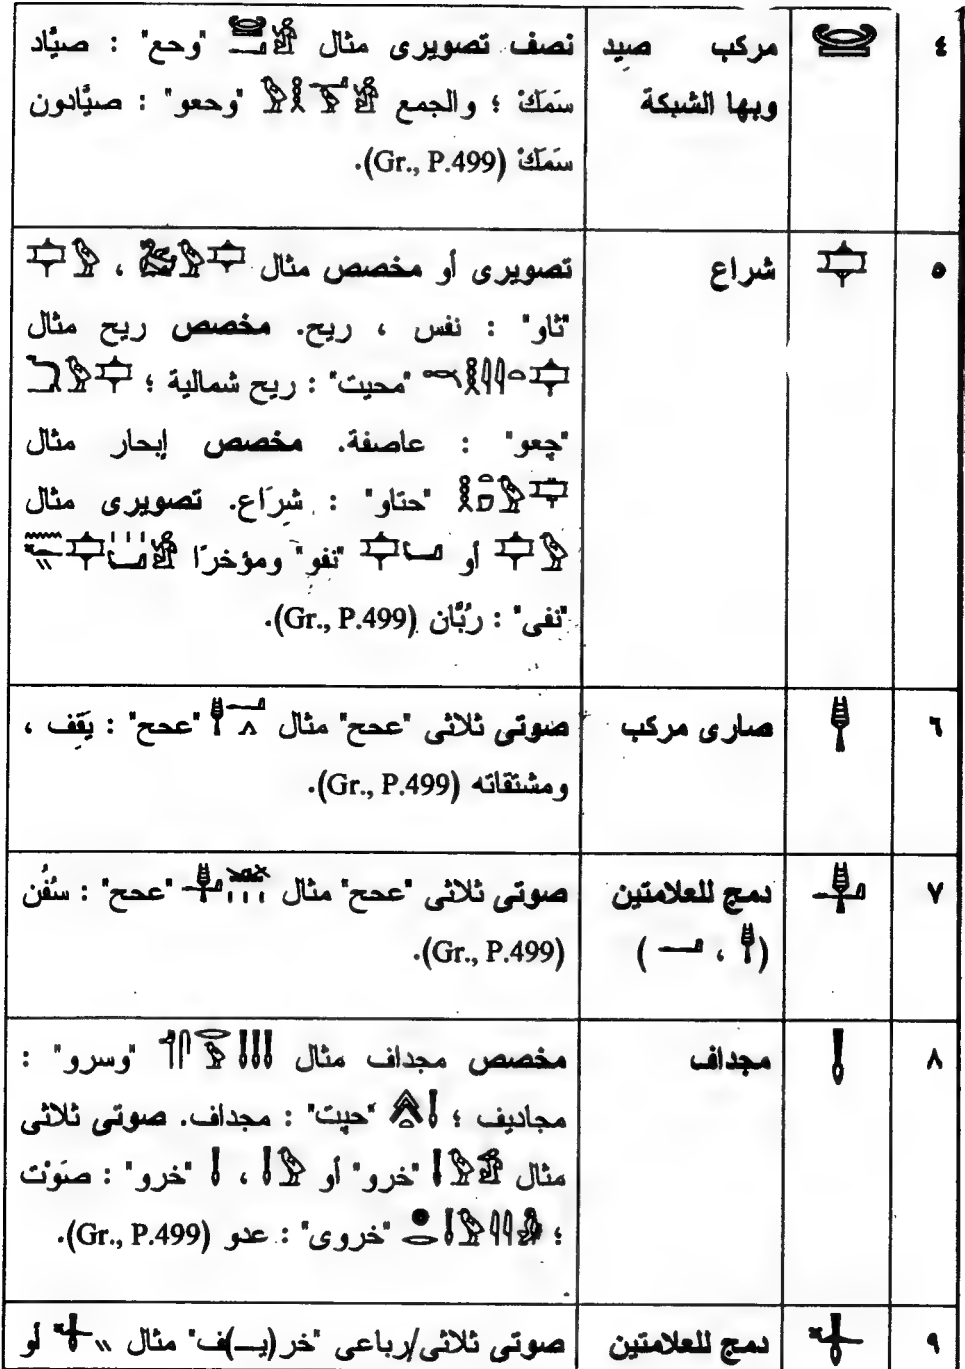 ٤ مركب صيد نصف تصويرى مثال "وحع" : صيَّاد
وبها الشبكة سَمَكْ ؛ والجمع "وحعو" : صيَّادون
سَمَكْ (Gr., P.499).
٥ شراع تصويرى أو مخصص مثال ،
"ثاو" : نفس ، ريح. مخصص ريح مثال
"محيت" : ريح شمالية ؛
"چعو" : عاصفة. مخصص إبحار مثال
"حتاو" : شرَاع. تصويرى مثال
أو "نفو" ومؤخرًا
"نفى" : رُبَّان (Gr., P.499).
٦ صارى مركب صوتى ثلاثى "عحح" مثال "عحح" : يَقِف ،
ومشتقاته (Gr., P.499).
٧ دمج للعلامتين صوتى ثلاثى "عحح" مثال "عحح" : سُفُن
( ، ) (Gr., P.499).
٨ مجداف مخصص مجداف مثال "وسرو" :
مجاديف ؛ "حپت" : مجداف. صوتى ثلاثى
مثال "خرو" أو ، "خرو" : صَوْت
؛ "خروى" : عدو (Gr., P.499).
٩ دمج للعلامتين صوتى ثلاثى/رباعى "خر(يـ)ف" مثال أو